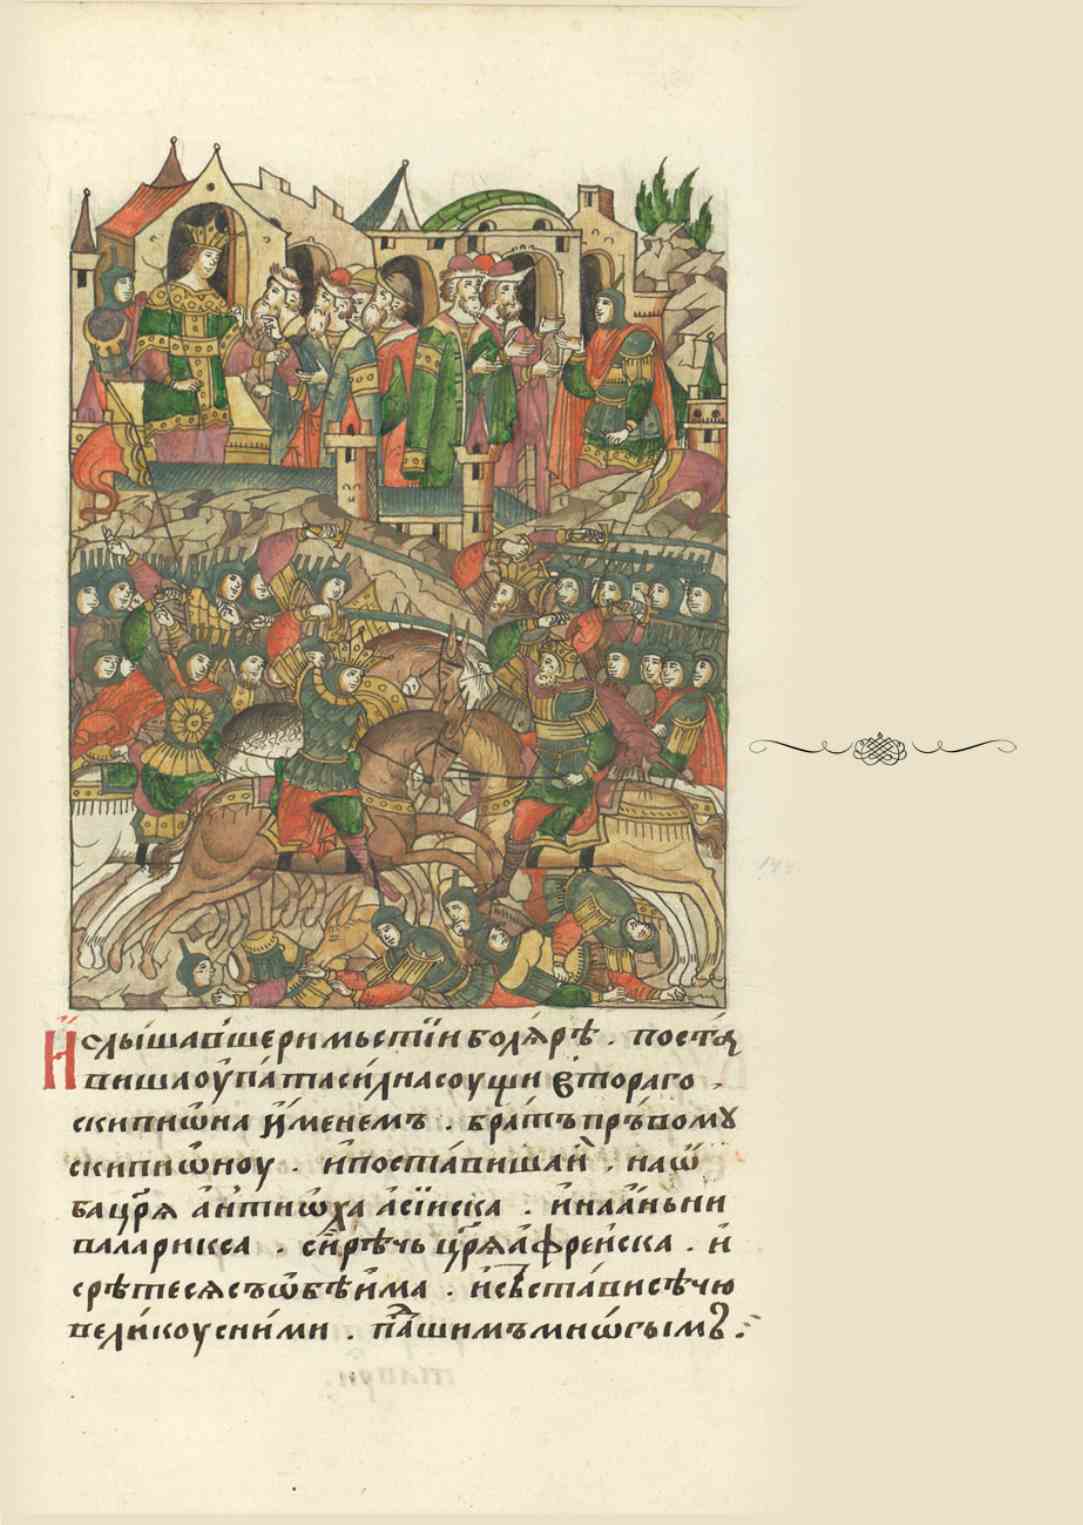 И слышавше римьстїи болѧрѣ . постꙗ
виша оупатаси лна соущи второго
скипиѡна и҆менемъ . братъ пръвомꙋ
скипиѡноу . и҆поставиша и҆ . на ѡ҆
ба цр҃ѧ а҆нтиѡха а҆сїиска . и҆ на а҆ньни
валарикса . си҆рѣчь цр҃ѧ а҆фреиска . и҆
срѣтесѧ съ ѡ҆бѣи҆ма . и҆ състави сѣчю
великоу сними . па́дшимъ мнѡгымъ .